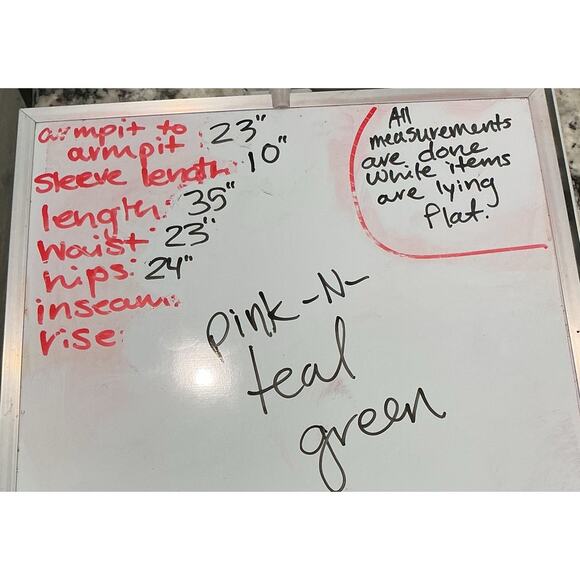 armpit to
armpit: 23"
sleeve length: 10"
length: 35"
waist: 23"
hips: 24"
inseam:
rise:
All
measurements
are done
while items
are lying
flat.
pink-N-
teal
green